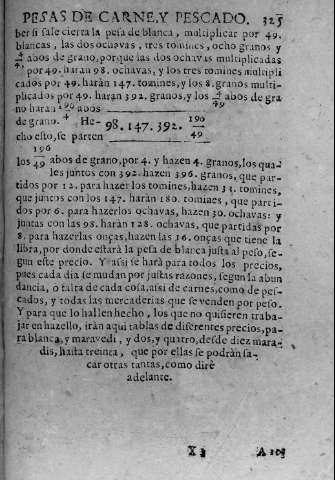 PESAS DE CARNE, Y PESCADO. 325
ber si sale cierta la pesa de blanca, multiplicar por 49.
blancas, las dos ochavas, tres tomines, ocho granos y
abos de grano, porque las dos ochavas multiplicadas
por 49. haran 98. ochavas, y los tres tomines multipli
cados por 49. haràn 147. tomines, y los 8. granos multi
plicados por 49. haràn 392. granos, y los abos de gra
no haràn 196 abos 49
de grano. 4 He-
98. 147. 392. 196
cho esto, se parten 49
196
los 49 abos de grano, por 4. y hazen 4. granos, los qua
les juntos con 392. hazen 396. granos, que par-
tidos por 12. para hazer los tomines, hazen 33. tomines,
que juncos con los 147. haràn 180. tomines, que parti-
dos por 6. para hazerlos ochavas, hazen 30. ochavas: y
juntas con las 98. haràn 128. ochavas, que partidas por
8. para hazerlas onças, hazen las 16. onças que tiene la
libra, por donde estarà la pesa de blanca justa al peso, se-
gun este precio. Y assi se harà para todos los precios,
pues cada dia se mudan por justas razones, segun la abun
dancia, o falta de cada cosa, assi de carnes, como de pes-
cados, y todas las mercaderias que se venden por peso.
Y para que lo hallen hecho, los que no quisieren traba-
jar en hazello, iràn aqui tablas de diferentes precios, pa-
ra blanca, y maravedi, y dos, y quatro, desde diez mara-
dis, hasta treinta, que por ellas se podràn sa-
car otras tantas, como dirè
adelante.
X 3